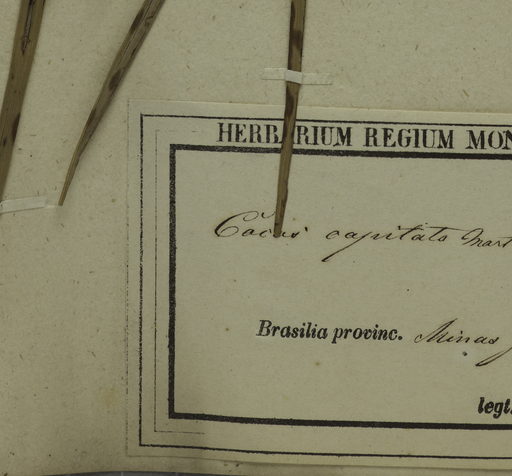 HERBARIUM REGIUM MON
Cocos capitata Mart
Brasilia provinc. Minas
legt.